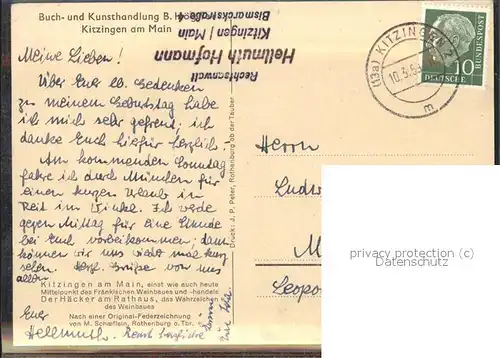 Buch- und Kunsthandlung B. Hö
Kitzingen am Main
Rechtsanwalt
Hellmuth Hofmann
Kitzingen / Main
Bismarckstraße 4
(13a) KITZINGEN 2
10.3.5
m
10
DEUTSCHE
BUNDESPOST
Meine Lieben!
Über Euer lb. Gedenken
zu meinem Geburtstag habe
ich mich sehr gefreut; ich
danke Euch hierfür herzlich.
Am kommenden Sonntag
fahre ich durch München für
einen kurzen Urlaub in
Reit im Winkel. Ich werde
gegen Mittag für eine Stunde
bei Euch vorbeikommen; dann
können wir uns wieder mal kurz
sehen. Herzl. Grüße von uns
allen
Euer
Hellmuth.
Kitzingen am Main, einst wie auch heute
Mittelpunkt des Fränkischen Weinbaues und -handels
Der Häcker am Rathaus, das Wahrzeichen
des Weinbaues
Nach einer Original-Federzeichnung
von M. Schæflein, Rothenburg o. Tbr.
Druck: J. P. Peter, Rothenburg ob der Tauber
Herrn
Ludw
M
Leopo
privacy protection (c)
Datenschutz